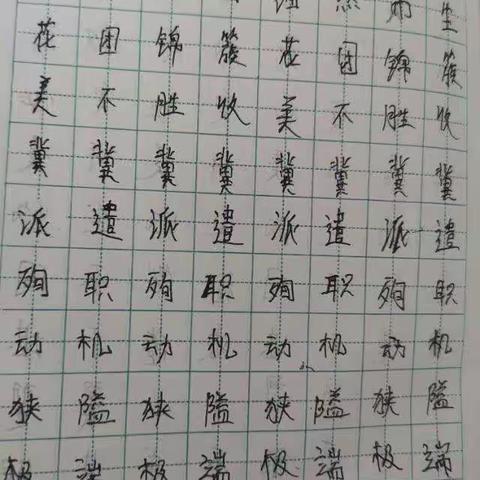 花团锦簇花团锦簇
美不胜收美不胜收
冀冀冀冀冀冀冀冀
派遣派遣派遣派遣
殉职殉职殉职殉职
动机动机动机动机
狭隘狭隘狭隘狭隘
极端极端极端极端